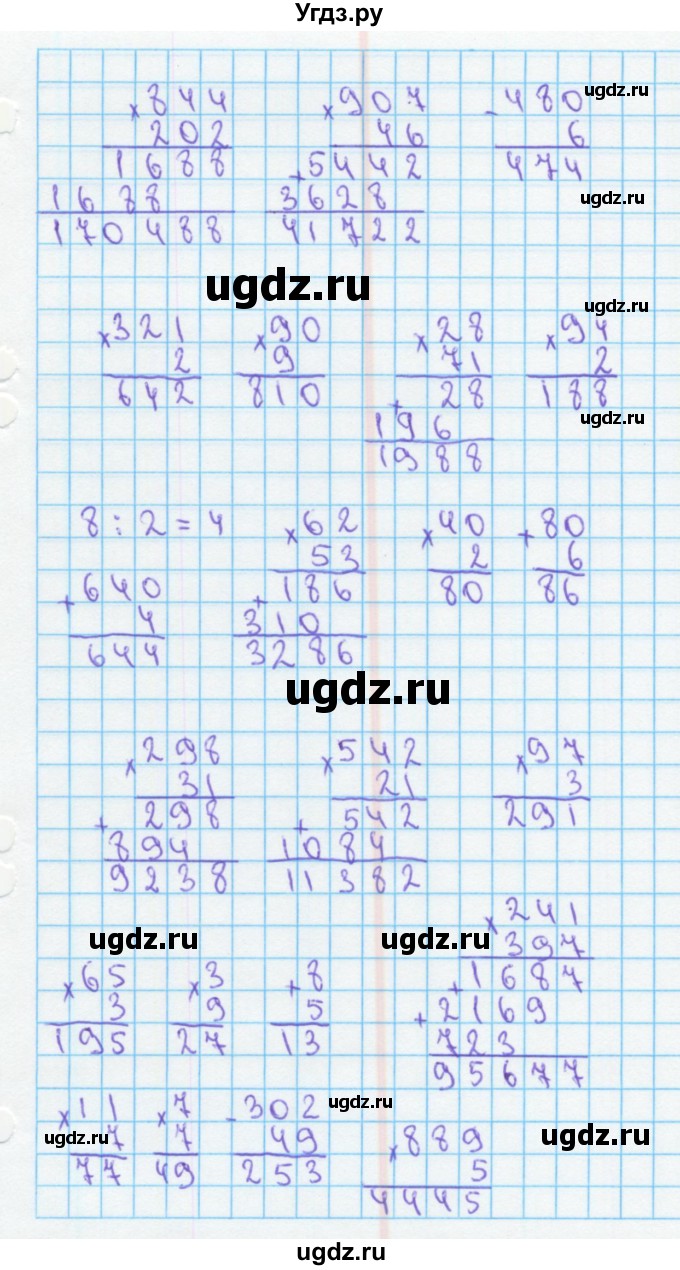 Угдз.ру
ugdz.ru
× 844 × 907 - 480
202 46 6
1688 + 5442 474
1688 3628 ugdz.ru
170488 41722
ugdz.ru
ugdz.ru
× 321 × 90 × 28 × 94
2 9 71 2
642 810 + 28 188
196 ugdz.ru
1988
8 : 2 = 4 × 62 × 40 + 80
53 2 6
+ 640 + 186 80 86
4 310
644 3286
ugdz.ru
× 298 × 542 × 97
31 21 3
+ 298 + 542 291
894 1084
9238 11382
× 241
ugdz.ru ugdz.ru 397
× 65 × 3 + 8 + 1687
3 9 5 + 2169
195 27 13 723
95677
× 11 × 7 - 302 ugdz.ru
ugdz.ru 7 7 49 × 889 ugdz.ru
77 49 253 5
4445
ugdz.ru